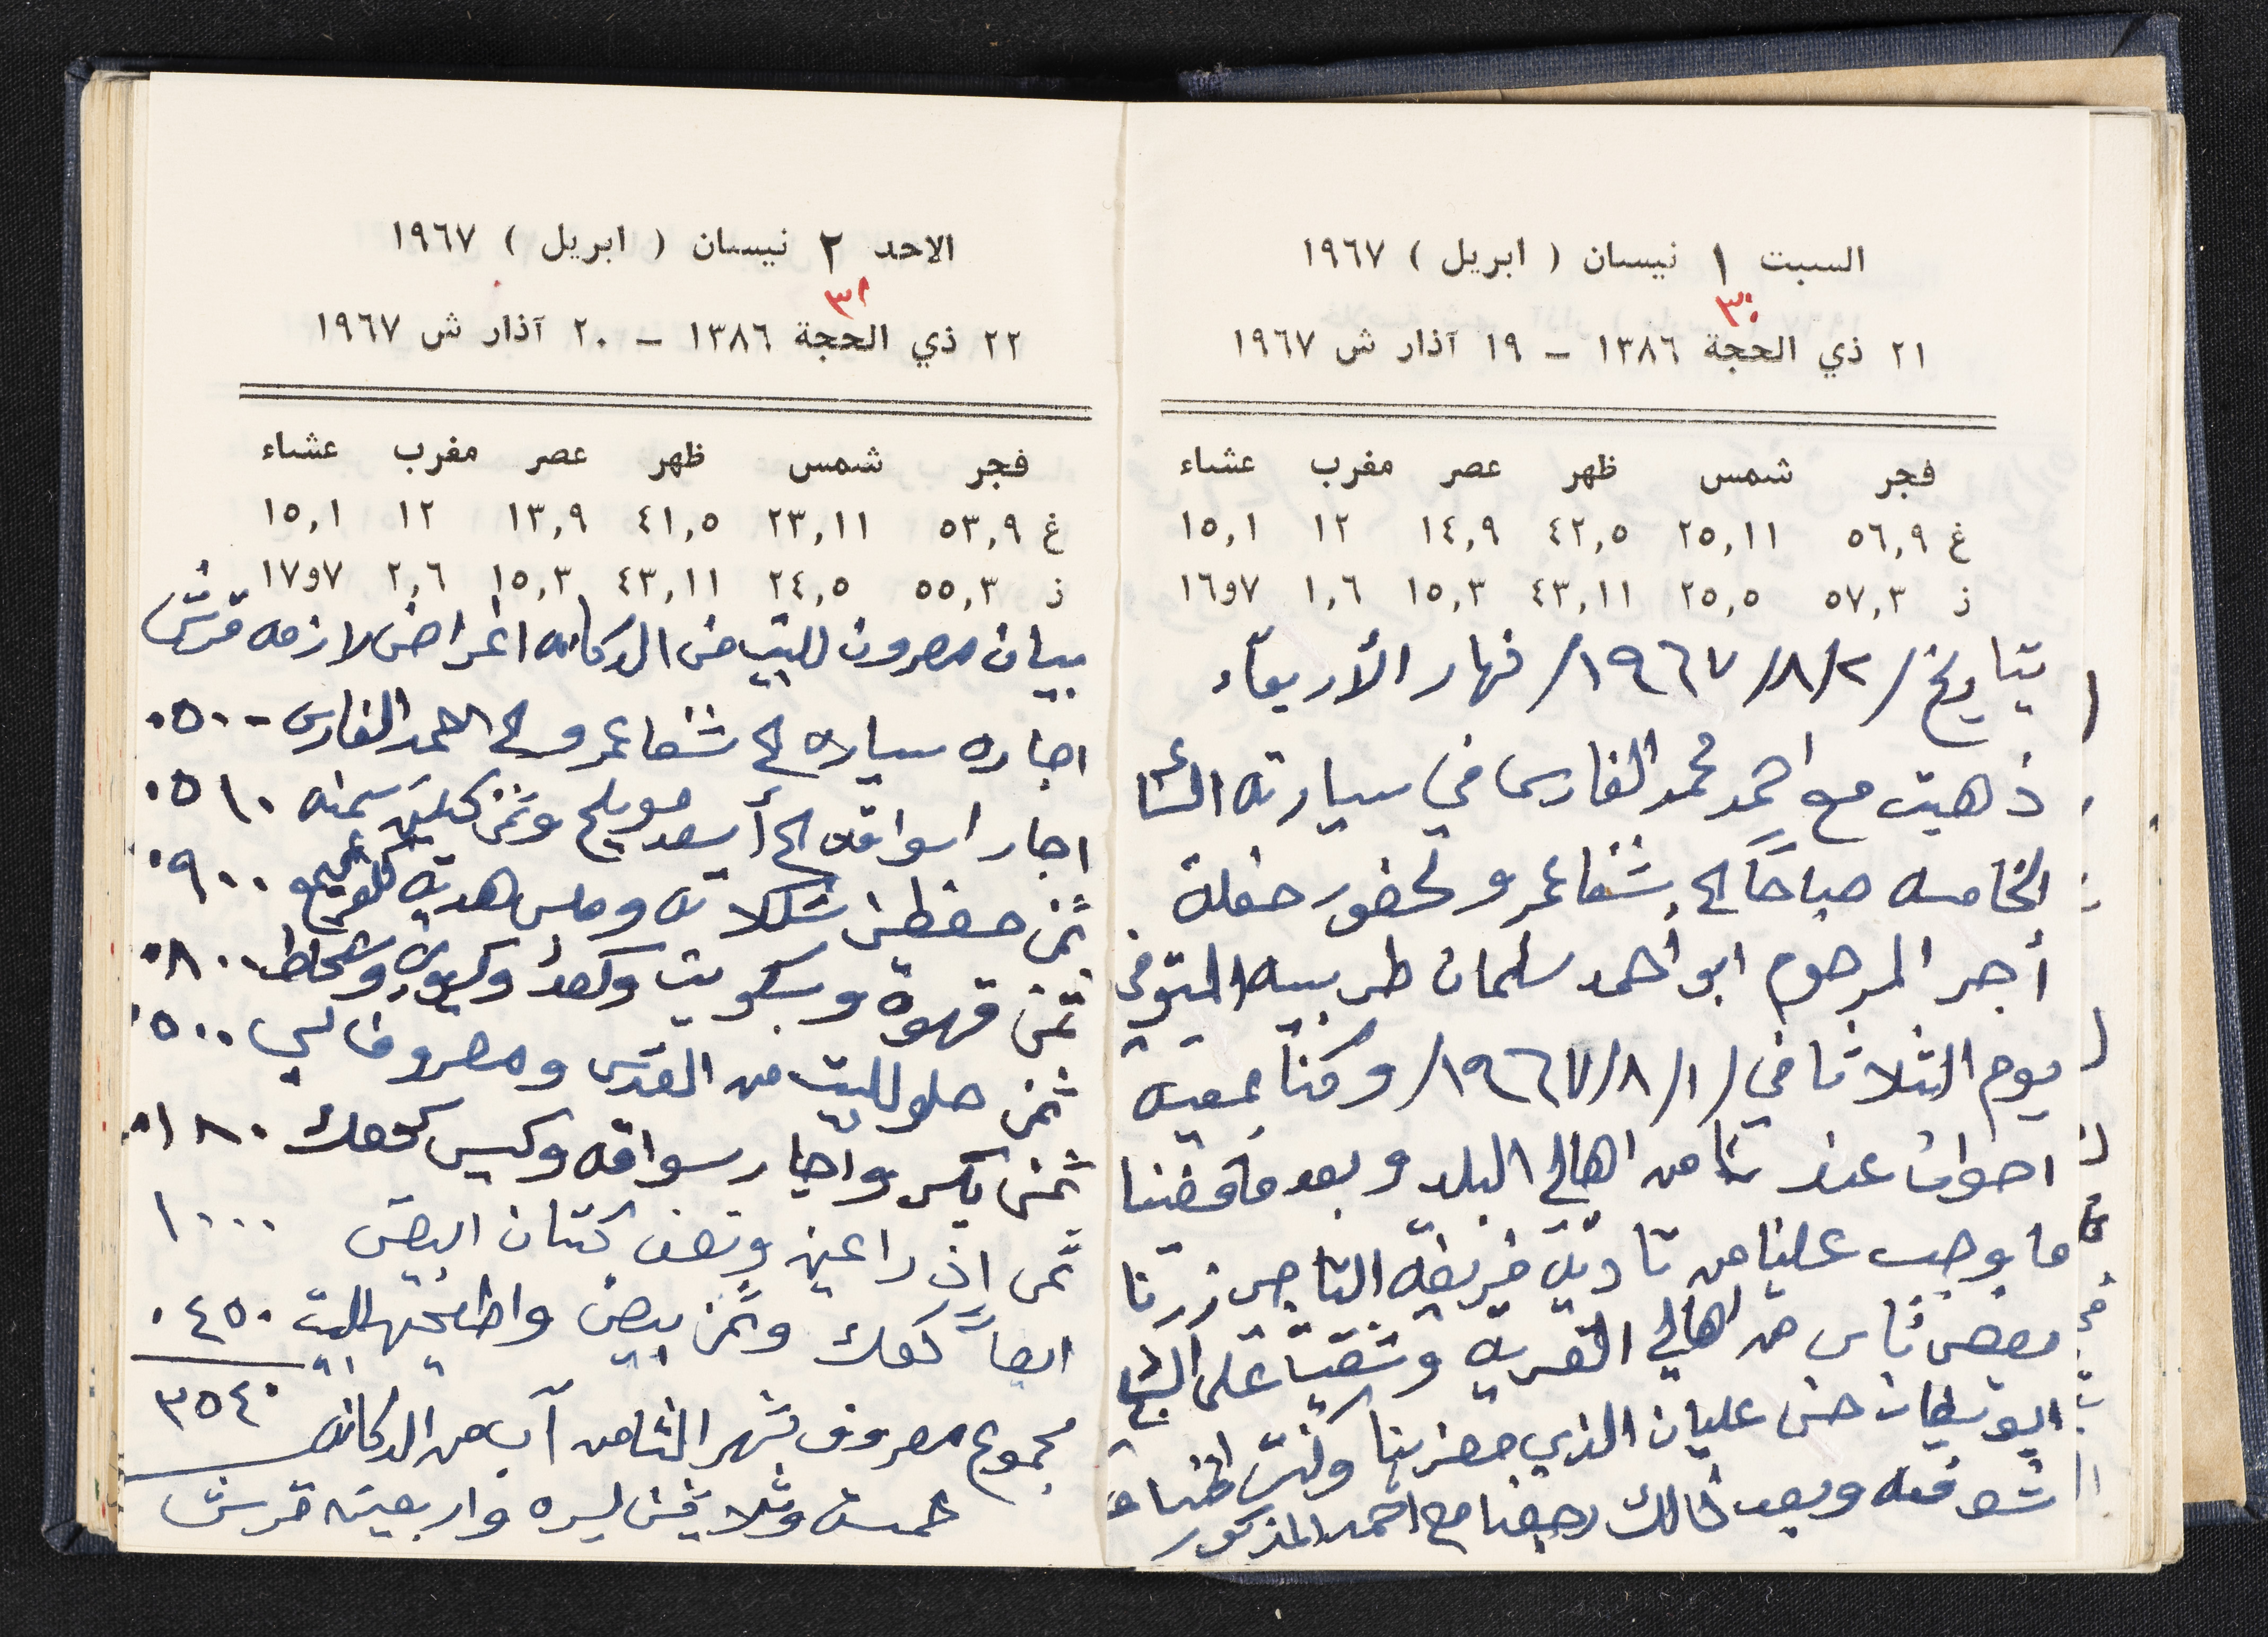 السبت ١ نيسان ( ابريل ) ١٩٦٧
٣٠
٢١ ذي الحجة ١٣٨٦ – ١٩ آذار ش ١٩٦٧
فجر شمس ظهر عصر مغرب عشاء
غ ٥٦,٩ ٢٥,١١ ٤٢,٥ ١٤,٩ ١٢ ١٥,١
ز ٥٧,٣ ٢٥,٥ ٤٣,١١ ١٥,٣ ١,٦ ٧و١٦
بتاريخ /٢/٨/١٩٦٧/ نهار الأربعاء
ذهبت مع احمد محمد الفارس في سيارته الساعة
الخامسه صباحاً الى شفاعمرو لحضور حفلة
أجر المرحوم ابو أحمد سلمان طربيه المتوفي
يوم الثلاثا في /١/٨/١٩٦٧/ وكنا بمعيه
اخوان عندنا من اهالي البلد وبعد ما قضينا
ما يوجب علينا من تاديه فريضة التاجر زرنا
بعض ناس من اهالي القريه وشقينا على الشيخ
ابو سلمان حسن عليان الذي
شرفنه وبعد ذالك رجعنا مع احمد المذكور
الاحد ٢ نيسان ( ابريل ) ١٩٦٧
٣١
٢٢ ذي الحجة ١٣٨٦ – ٢٠ آذار ش ١٩٦٧
فجر شمس ظهر عصر مغرب عشاء
غ ٥٣,٩ ٢٣,١١ ٤١,٥ ١٣,٩ ١٢ ١٥,١
ز ٥٥,٣ ٢٤,٥ ٤٣,١١ ١٥,٣ ٢,٦ ٧و١٧
بيان مصروف للبيت من الدكانه اغراض لازمه قرش
اجاره سياره الى شفاعمرو الى احمد الفارس - ٠٥٠٠
اجار اسواقه الى أسعد مويلح وثمن كيلين سمنه ٠٥١٠
ثمن شكلاته وملبس هديه ٠٩٠٠
ثمن قهوة وبسكويت وكعك وشحاط ٠٨٠٠
ثمن حلو للبيت من القدس ومصروف الي ٠٥٠٠
ثمن بكس واجار سواقه وكيس كعك ٠١٨٠
ثمن اذراعين ونصف كتان ابيض ١٠٠٠
ايضاً كعك وثمن بيض للبيت ٠٤٥٠
مجموع مصروف شهر الثامن آب من الدكانه ٣٥٤٠
خمسة وثلاثين ليره واربعين قرش